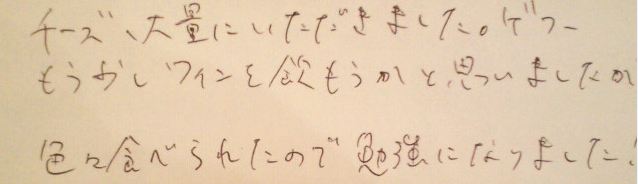 チーズ、大量にいただきました。ゲフー
もう少しワインを飲もうかと思いましたが
色々食べられたので勉強になりました!